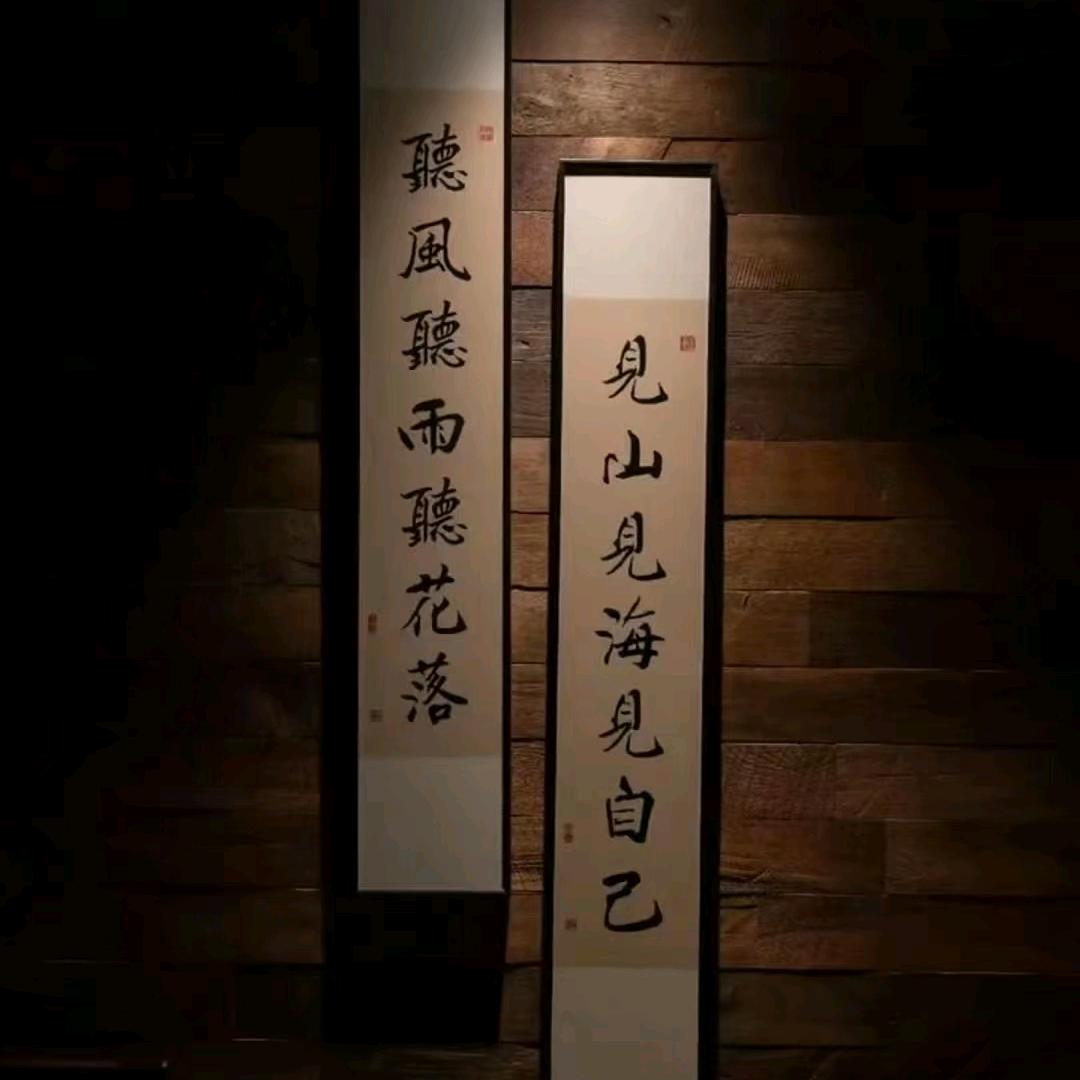 見山見海見自己
聽風聽雨聽花落